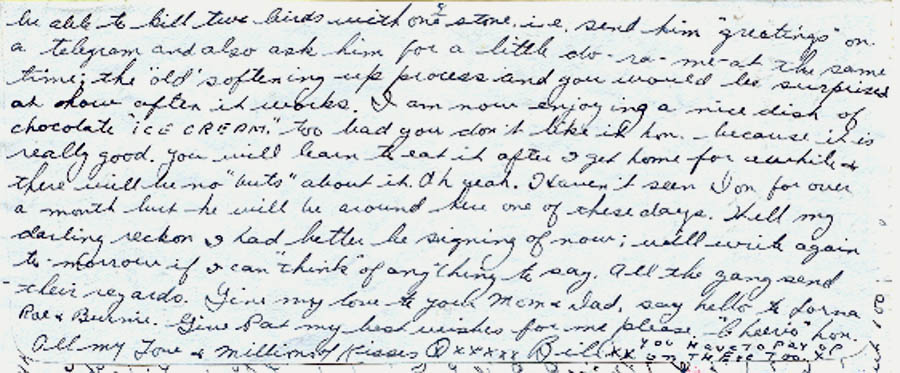 be able to kill two birds with one stone, i.e. send him "greetings" on
a telegram and also ask him for a little do-ra-me at the same
time; the 'old' softening-up process and you would be surprised
at how often it works. I am now enjoying a nice dish of
chocolate "ICE CREAM." Too bad you don't like it hon. because it is
really good. You will learn to eat it after I get home for awhile &
there will be no "buts" about it. Oh yeah. Haven't seen Don for over
a month but he will be around here one of these days. Well my
darling reckon I had better be signing of now; will write again
to-morrow if I can "think" of anything to say. All the gang send
their regards. Give my love to your Mom & Dad, say hello to Lorna
& Burnie. Give Pat my best wishes for me please. "Cheerio" hon.
All my Love & Millions of Kisses xxxxx Bill xx YOU HAVE TO PAY UP
ON THESE TOO. X